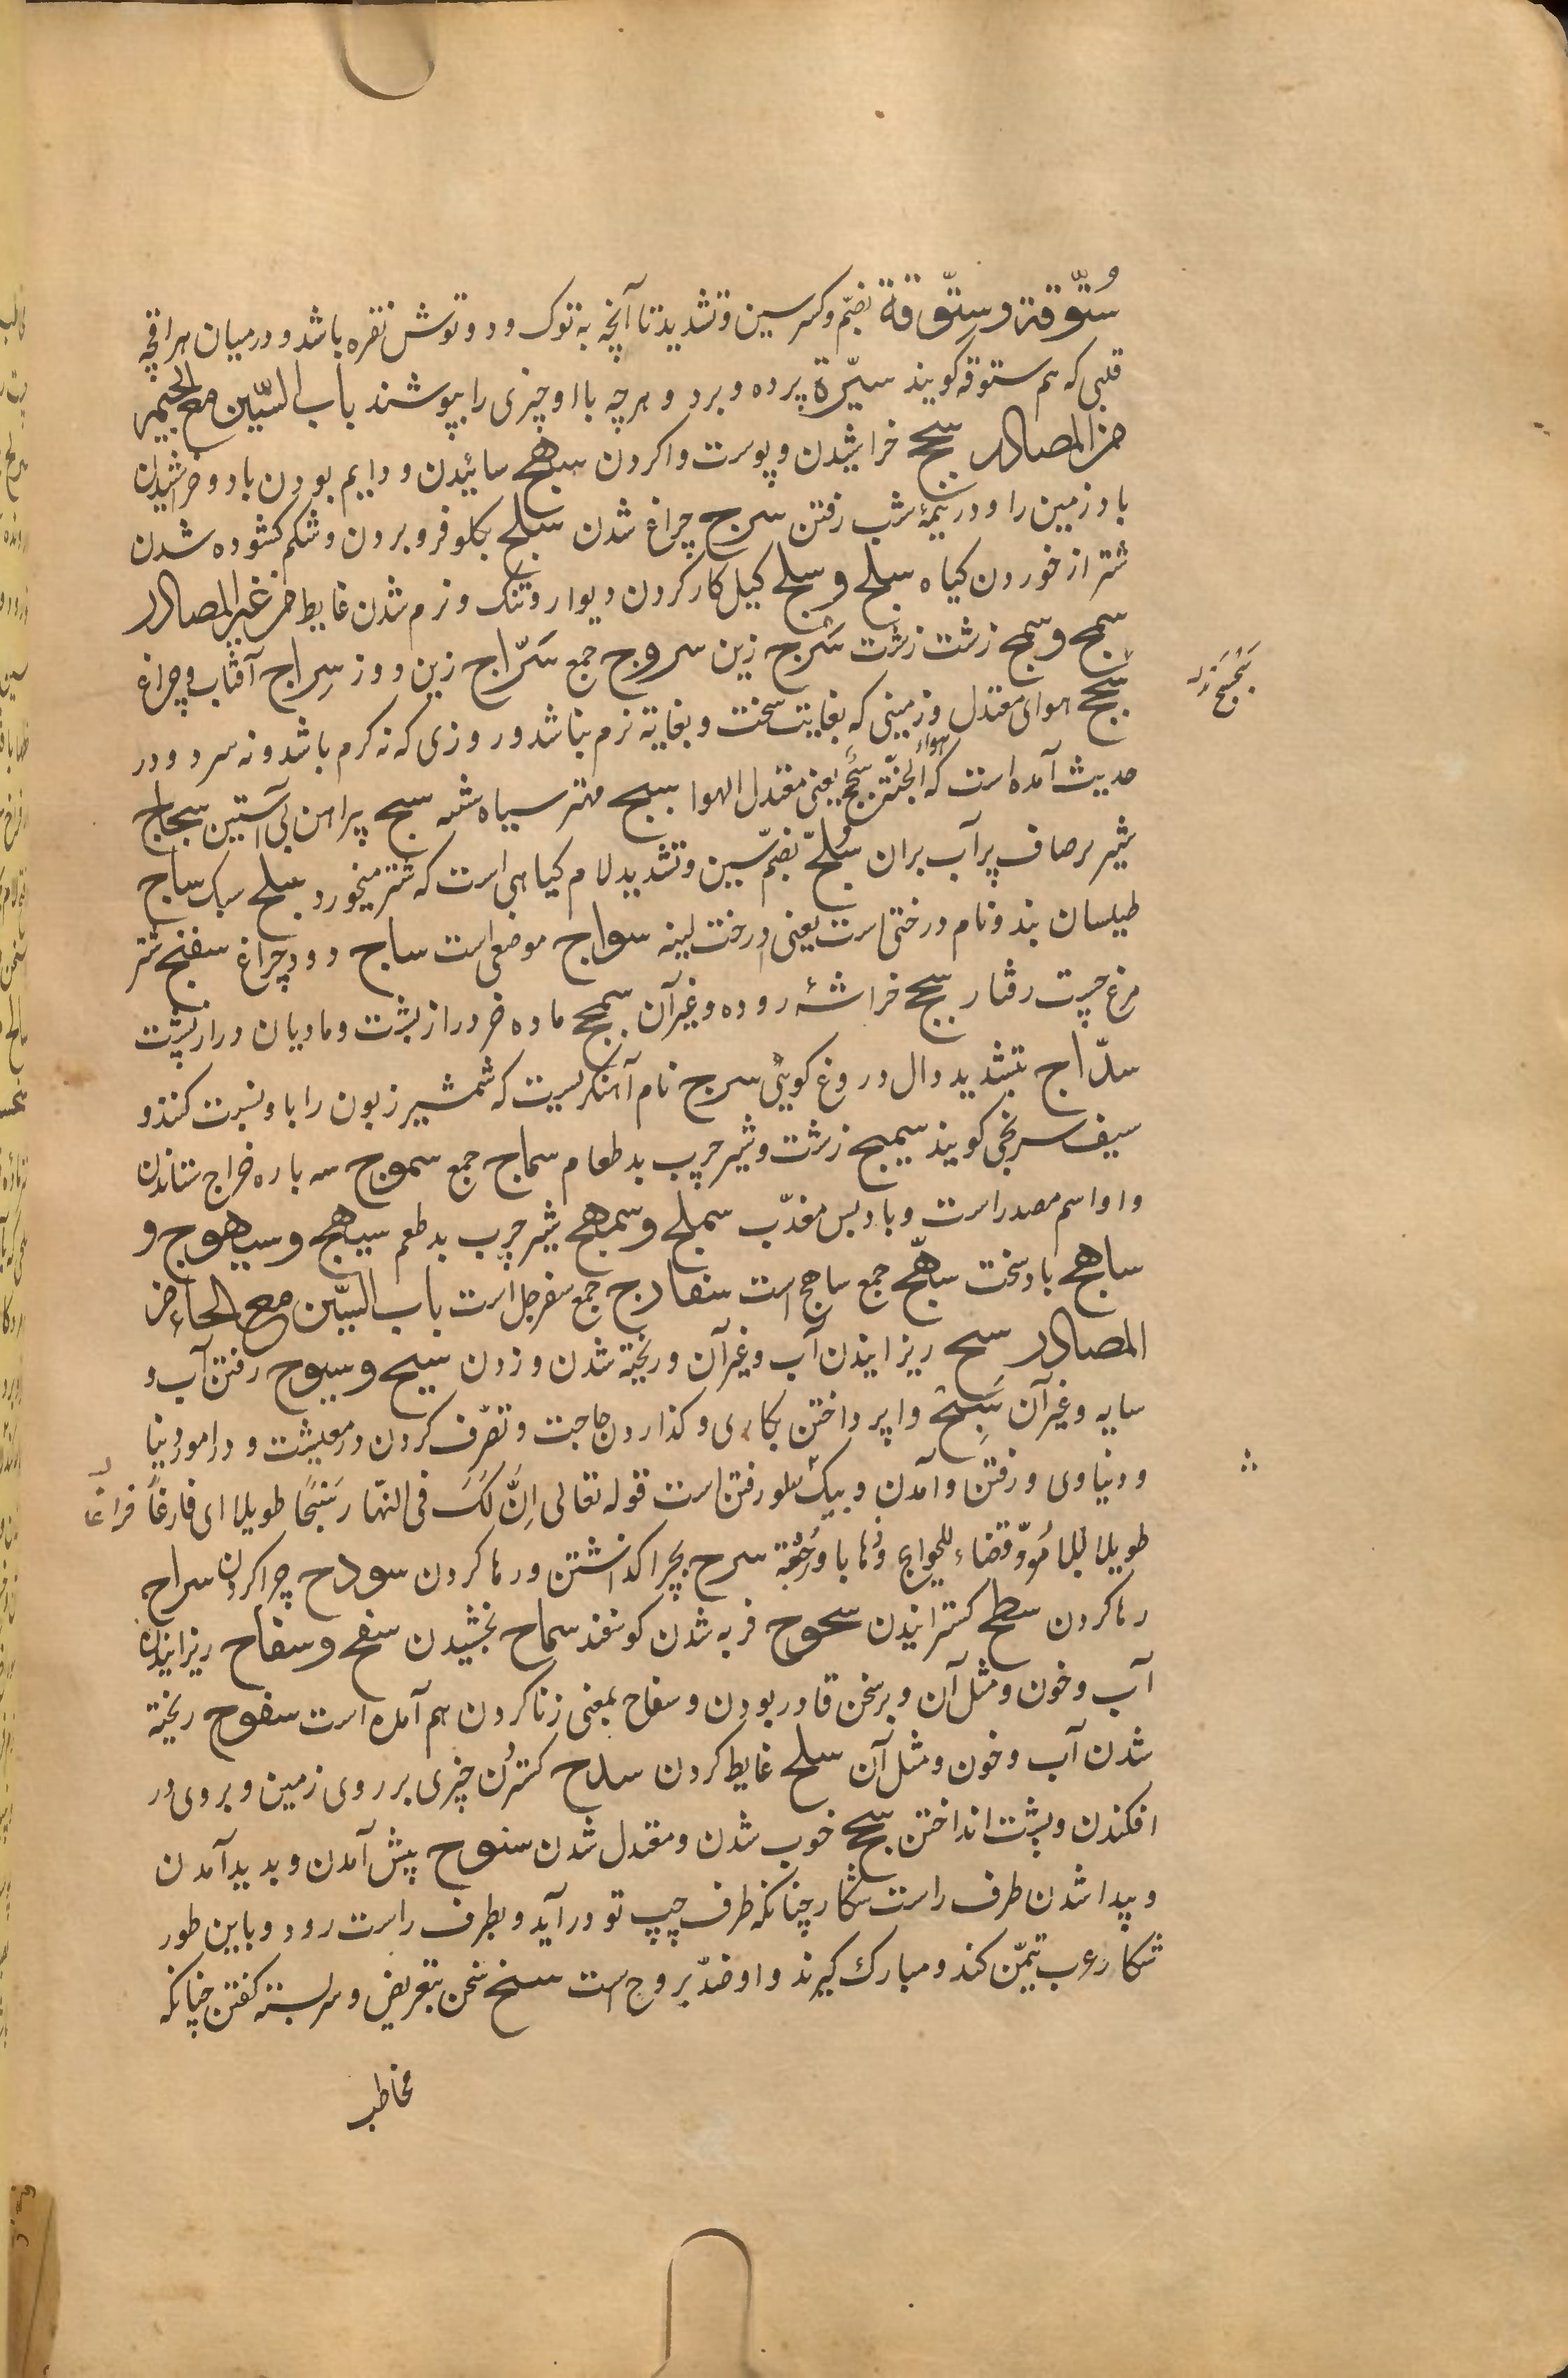 سُتّوقة و سِتّوقة بضمّ و کسر سین و تشدید تا آنچه به توک و دو توش نقره باشد و درمیان هر اقچه
قلبی که هم ستوقه کویند سیّرة پرده و برد و هرچه با او چیزی را بپوشند باب السّین مع الجیم
من المصادر سحج خراشیدن و پوست واکردن سهج سائیدن و دایم بودن باد و خراشیدن
باد زمین را و در نیمهٔ شب رفتن سرج چراغ شدن سلج بکلو فرو بردن و شکم کشوده شدن
شتر از خوردن کیاه سلج و سلج کیل کار کردن دیوار و تنک و نرم شدن غایط من غیر المصادر
سمج و سمج زشت زشت سَرج زین سروج جمع سَرّاج زین دوز سِراج آفتاب و چراغ
سجسج هوای معتدل و زمینی که بغایت سخت و بغایة نرم نباشد و روزی که نه کرم باشد و نه سرد و در
حدیث آمده است که هواء الجنّة سجسج یعنی معتدل الهوا سبج مهتر سیاه شبه سبج پراهن بی آستین سجاج
شیر نرصاف پر آب بران سُلّج بضمّ سین و تشدید لام کیاهی است که شتر میخورد سلج سبک ساج
طیلسان بند و نام درختی است یعنی درخت لبنه سواج موضعی است ساج دود چراغ سفنج شتر
مرغ چست رفتار سحج خراشهٔ روده و غیر آن سمحج ماده خر دراز پشت و مادیان دراز پشت
سدّاج بتشدید دال دروغ کویی سرج نام آهنکریست که شمشیر زبون را باو نسبت کنند و
سیف سریجی کویند سمیج زشت و شیر چرب بد طعام سماج جمع سموج سه باره خراج ستاندن
و او اسم مصدر است و بادبس معذّب سملج و سمهج شیر چرب بد طعم سیهج و سیهوج و
ساهج باد سخت سهّج جمع ساهج است سفارج جمع سفرجل است باب السّین مع الحاء من
المصادر سح ریزانیدن آب و غیر آن و ریخته شدن و زدن سیح و سیوح رفتن آب و
سایه و غیر آن سَبْح واپرداختن بکاری و کذاردن حاجت و تصّرف کردن در معیشت و در امور دنیا
و دنیاوی و رفتن و آمدن و بیک سلو رفتن است قوله تعالی اِنَّ لَکَ فی النّهار سَبْحًا طویلا ای فارغاً فراغا
طویلا قضاء للحوایج و ذهابا و رجعة سرح بچرا کذاشتن و رها کردن سروح چرا کردن سراح
رها کردن سطح کسترانیدن سحوح فربه شدن کوسفند سماح بخشیدن سفح و سفاح ریزانیدن
آب و خون و مثل آن و بر سخن قادر بودن و سفاح بمعنی زنا کردن هم آمده است سفوح ریخته
شدن آب و خون و مثل آن سلح غایط کردن سدح کستردن چیزی بر روی زمین و بروی در
افکندن و بپشت انداختن سجح خوب شدن و معتدل شدن سنوح پیش آمدن و بدید آمدن
و پیدا شدن طرف راست شکار چنانکه طرف چپ تو در آید و بطرف راست رود و باین طور
شکار عرب تیمّن کند و مبارك کیرند و او ضدّ بروح است سنح سخن بتعریض و سربسته کفتن چنانکه
مخاطب